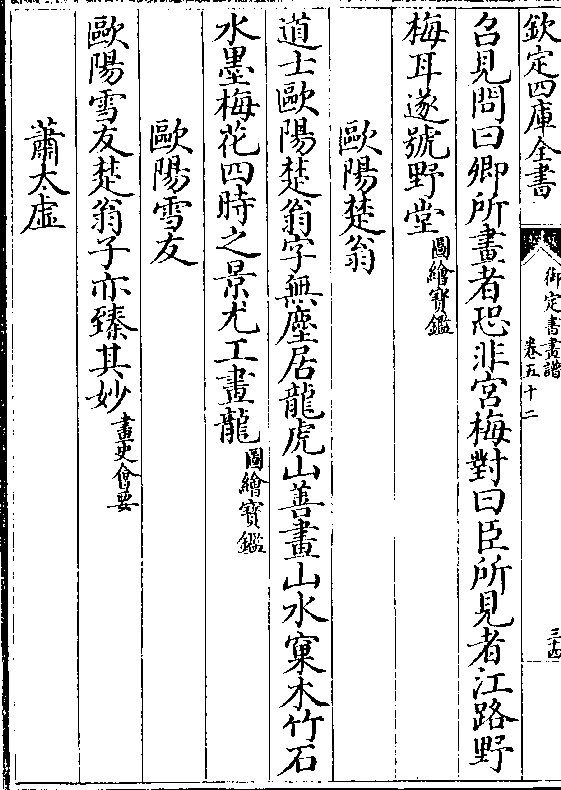 欽定四庫全書
御定書畫譜
卷五十二
三十四
召見問曰卿所畫者恐非宮梅對曰臣所見者江路野
梅耳遂號野堂圖繪寶鑑
歐陽楚翁
道士歐陽楚翁字無塵居龍虎山善畫山水窠木竹石
水墨梅花四時之景尤工畫龍圖繪寶鑑
歐陽雪友
歐陽雪友楚翁子亦臻其妙畫史會要
蕭太虛